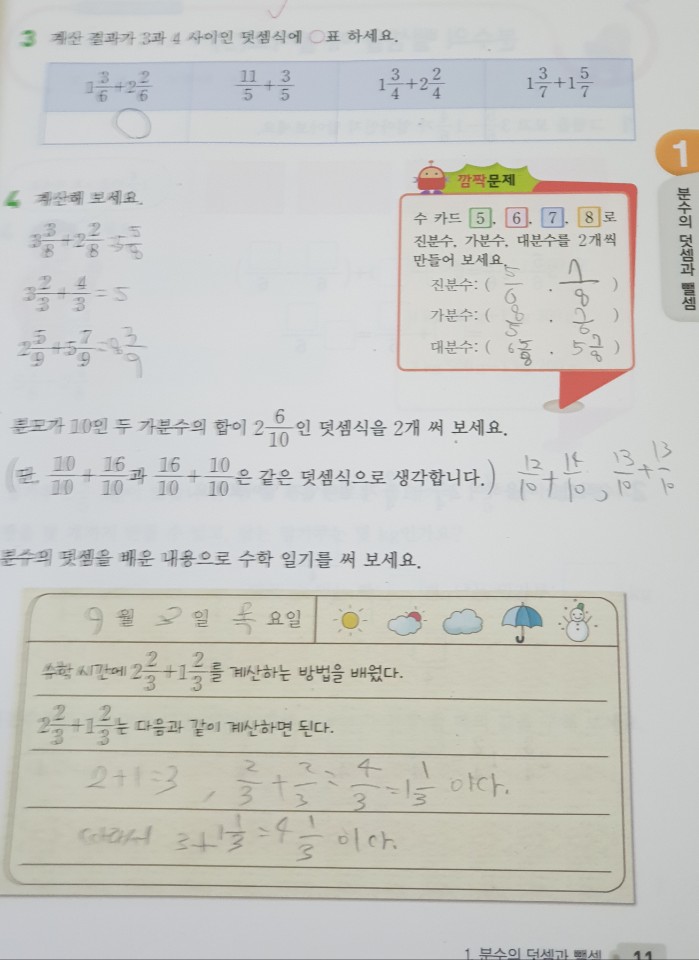 3 계산 결과가 3과 4 사이인 덧셈식에 ○표 하세요.
1 3/6 + 2 2/6  11/5 + 3/5  1 3/4 + 2 2/4  1 3/7 + 1 5/7
○
4 계산해 보세요.
3 3/8 + 2 2/8 = 5 5/8
3 2/3 + 4/3 = 5
2 5/9 + 5 7/9 = 8 3/9
깜짝문제
수 카드 5, 6, 7, 8로
진분수, 가분수, 대분수를 2개씩
만들어 보세요.
진분수: ( 5/6 , 7/8 )
가분수: ( 8/5 , 7/6 )
대분수: ( 6 5/8 , 5 7/8 )
1
분수의 덧셈과 뺄셈
분모가 10인 두 가분수의 합이 2 6/10인 덧셈식을 2개 써 보세요.
(단, 10/10 + 16/10과 16/10 + 10/10은 같은 덧셈식으로 생각합니다.) 12/10 + 14/10, 13/10 + 13/10
분수의 덧셈을 배운 내용으로 수학 일기를 써 보세요.
9월 일 목요일
수학 시간에 2 2/3 + 1 2/3를 계산하는 방법을 배웠다.
2 2/3 + 1 2/3는 다음과 같이 계산하면 된다.
2+1=3, 2/3 + 2/3 = 4/3 = 1 1/3 이다.
따라서 3 + 1 1/3 = 4 1/3 이다.
1. 분수의 덧셈과 뺄셈 11